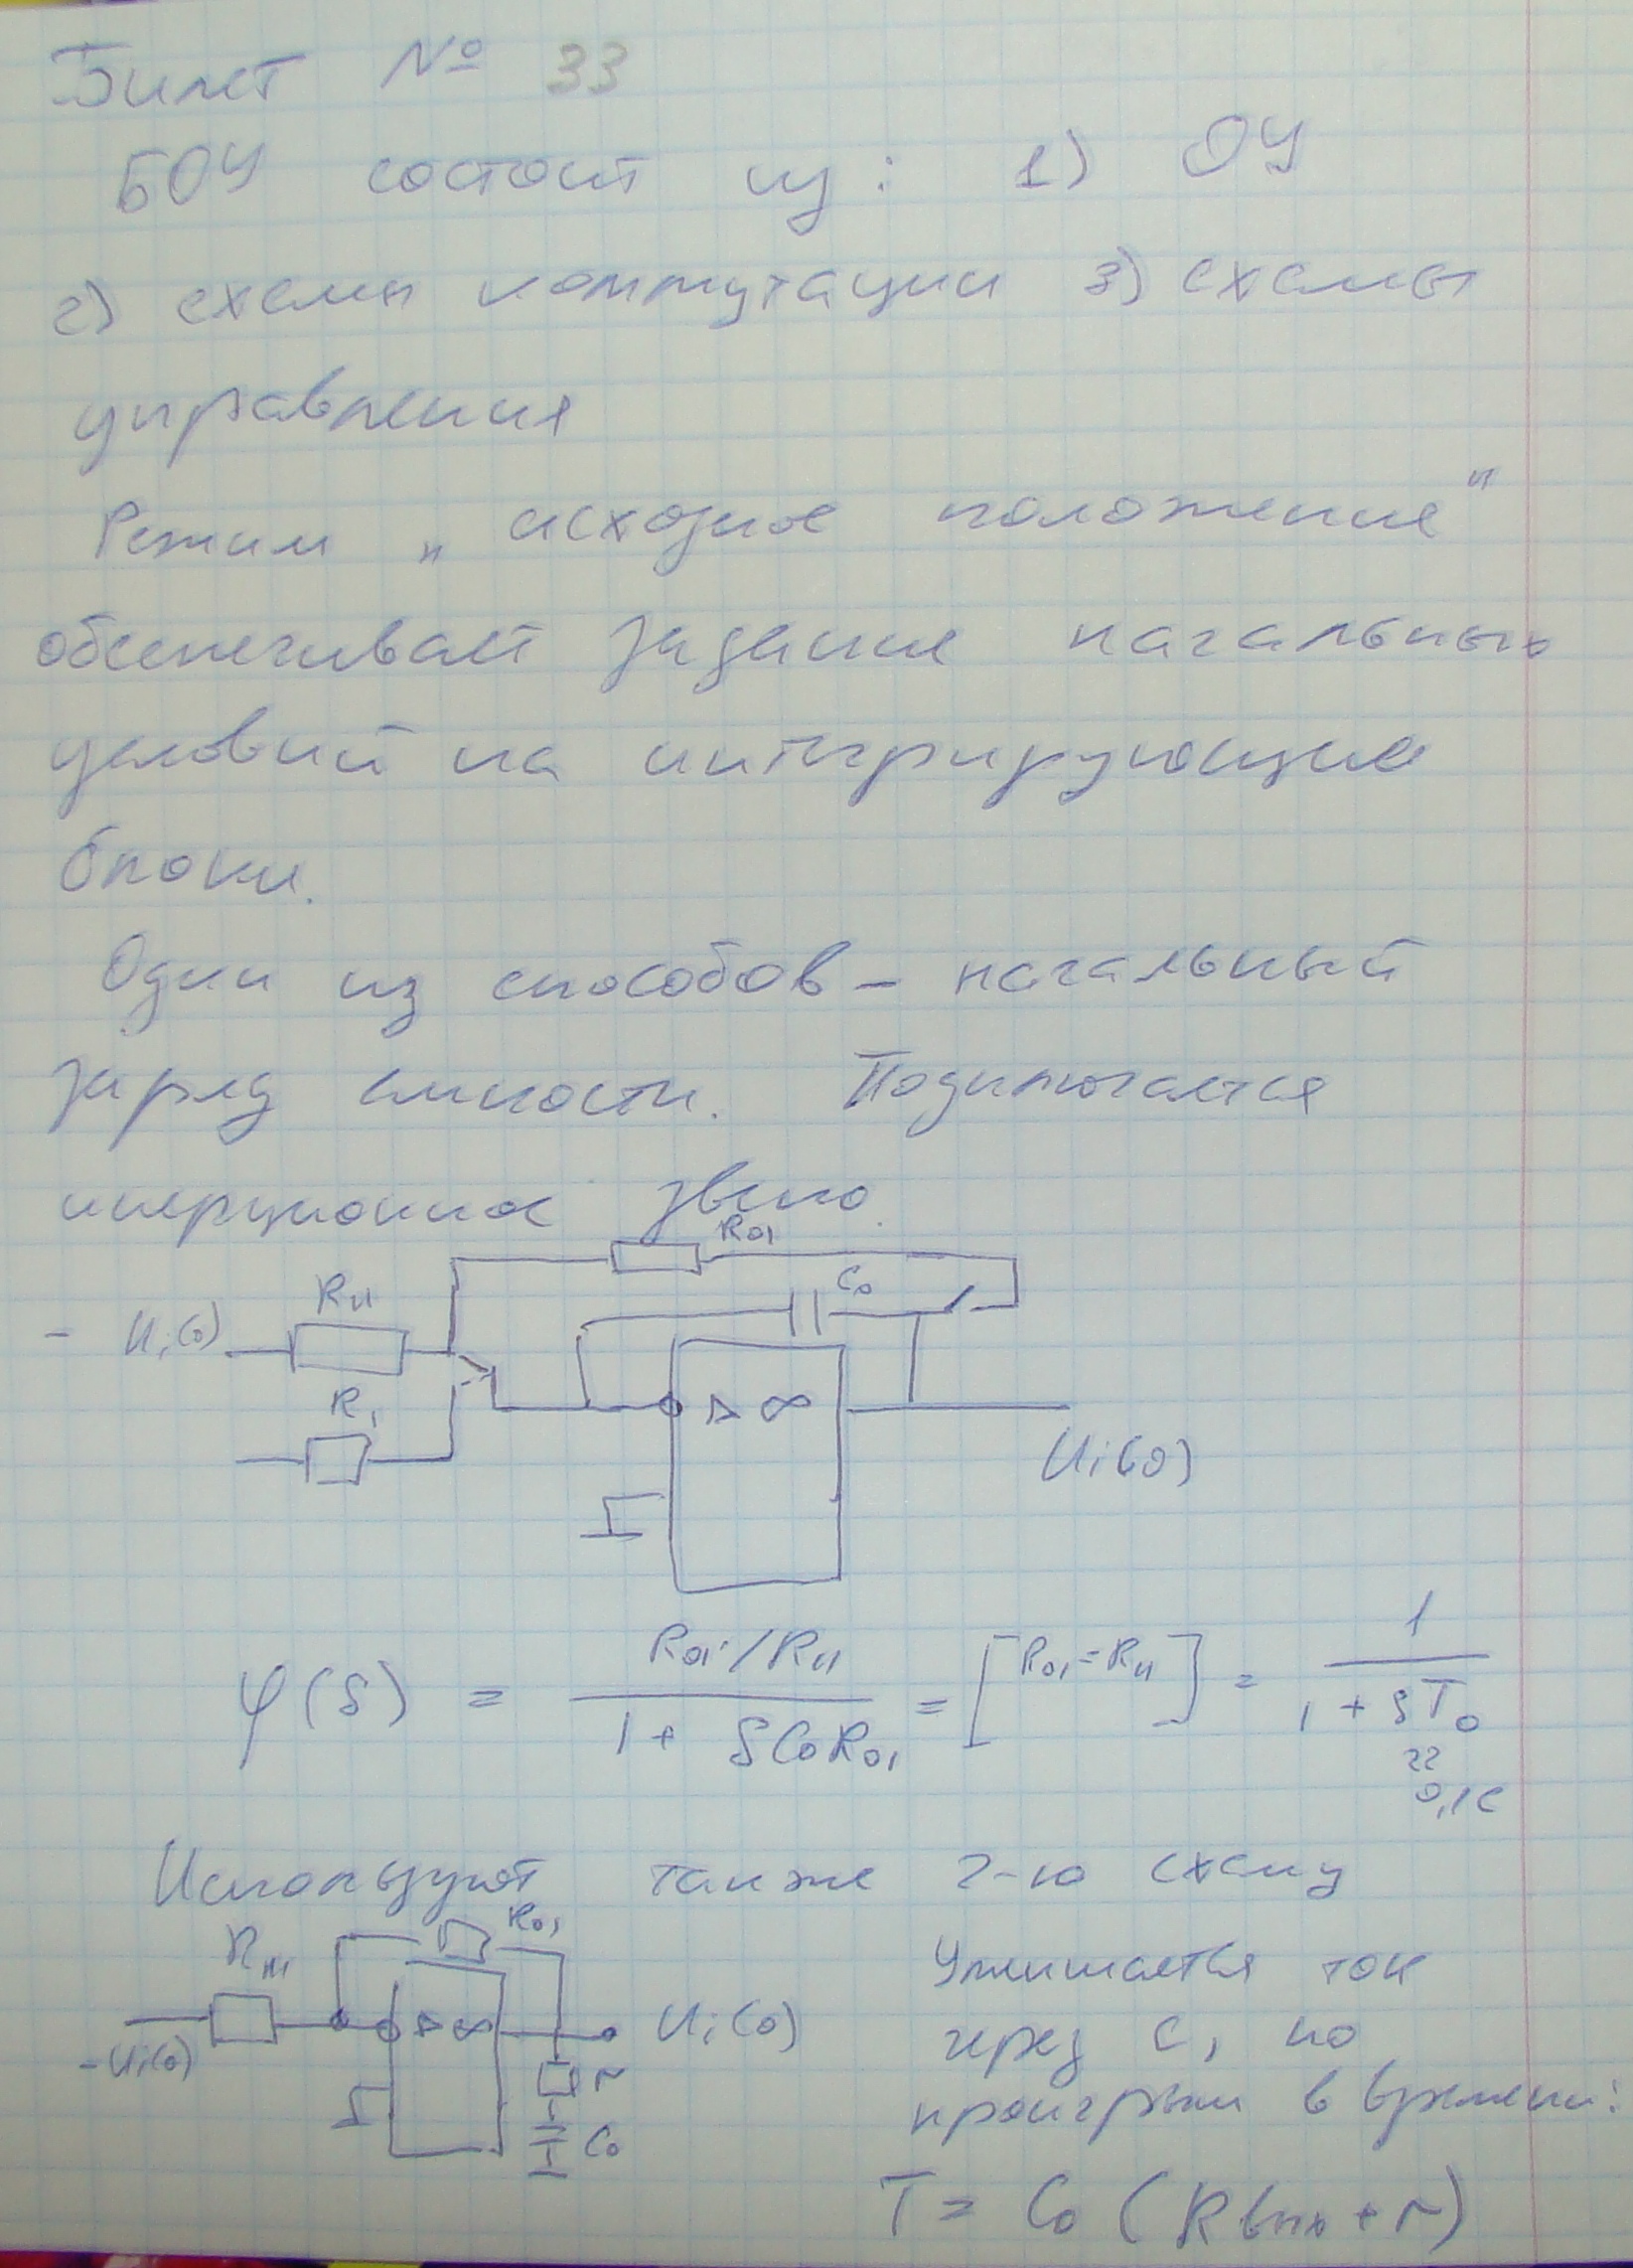 Билет № 33
БОУ состоит из: 1) ОУ
2) схемы коммутации 3) схемы
управления
Режим „исходное положение"
обеспечивает задание начальных
условий на интегрирующие
блоки.
Один из способов – начальный
заряд емкости. Подключается
инерционное звено.
R01
Rн
C0
- Ui(0)
R1
▷ ∞
Ui(0)
φ(s) = (R01/Rн) / (1 + SC0R01) = [R01 = Rн] = 1 / (1 + sT0)
0,1с
Используют также 2-ю схему
R01
▷ ∞
Ui(0)
-Ui(0)
r
C0
Уменшается ток
через C, но
проигрыш в времени:
T = C0 (Rвых + r)